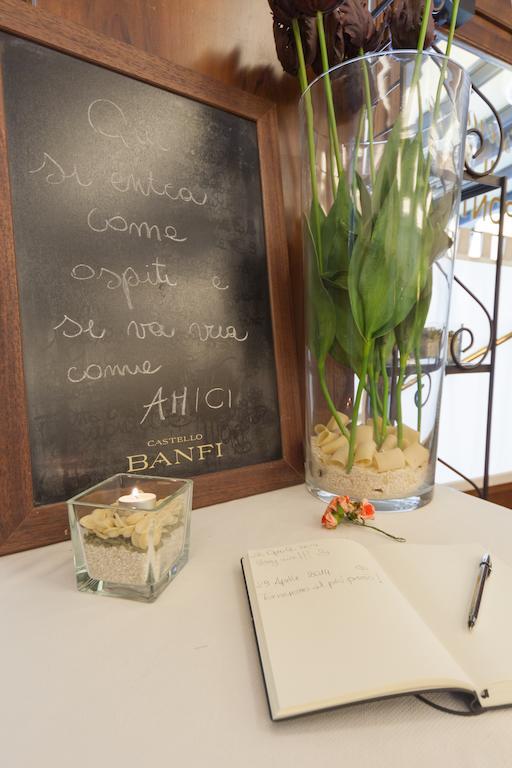 Qui
si entra
come
ospiti e
se va via
come
AMICI
CASTELLO
BANFI
29 Aprile 2014